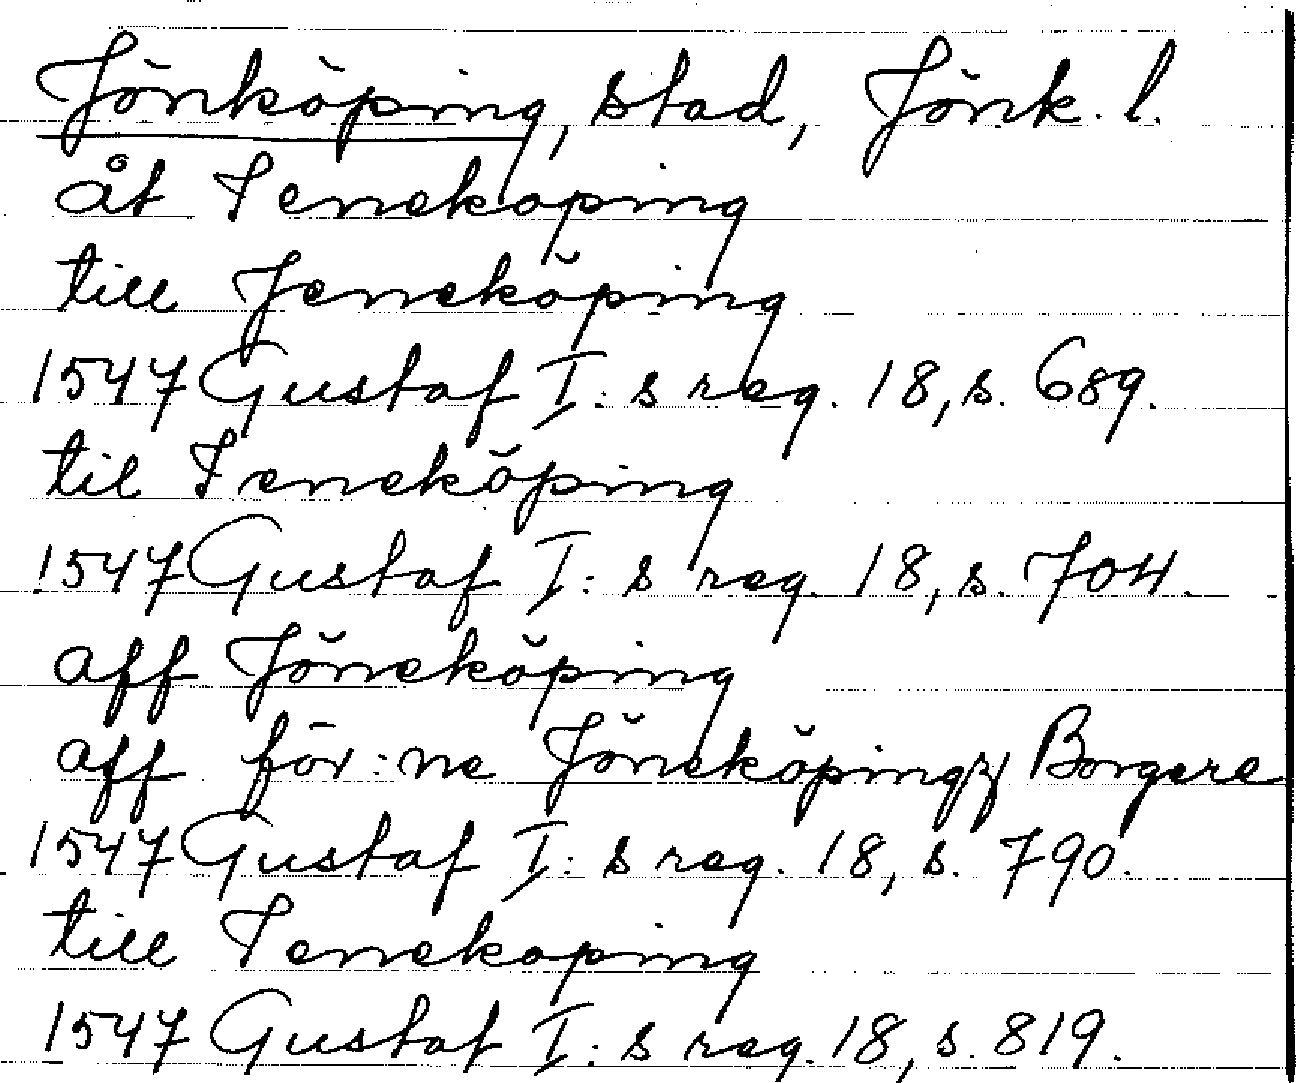 Jönköping, stad, Jönk. l.
åt Ieneköping
till Jeneköping
1547 Gustaf I:s reg. 18, s. 689.
til Ieneköping
1547 Gustaf I:s reg. 18, s. 704.
aff Jöneköping
aff för:ne Jöneköpingz Borgere
1547 Gustaf I:s reg. 18, s. 790.
till Ienekoping
1547 Gustaf I:s reg. 18, s. 819.